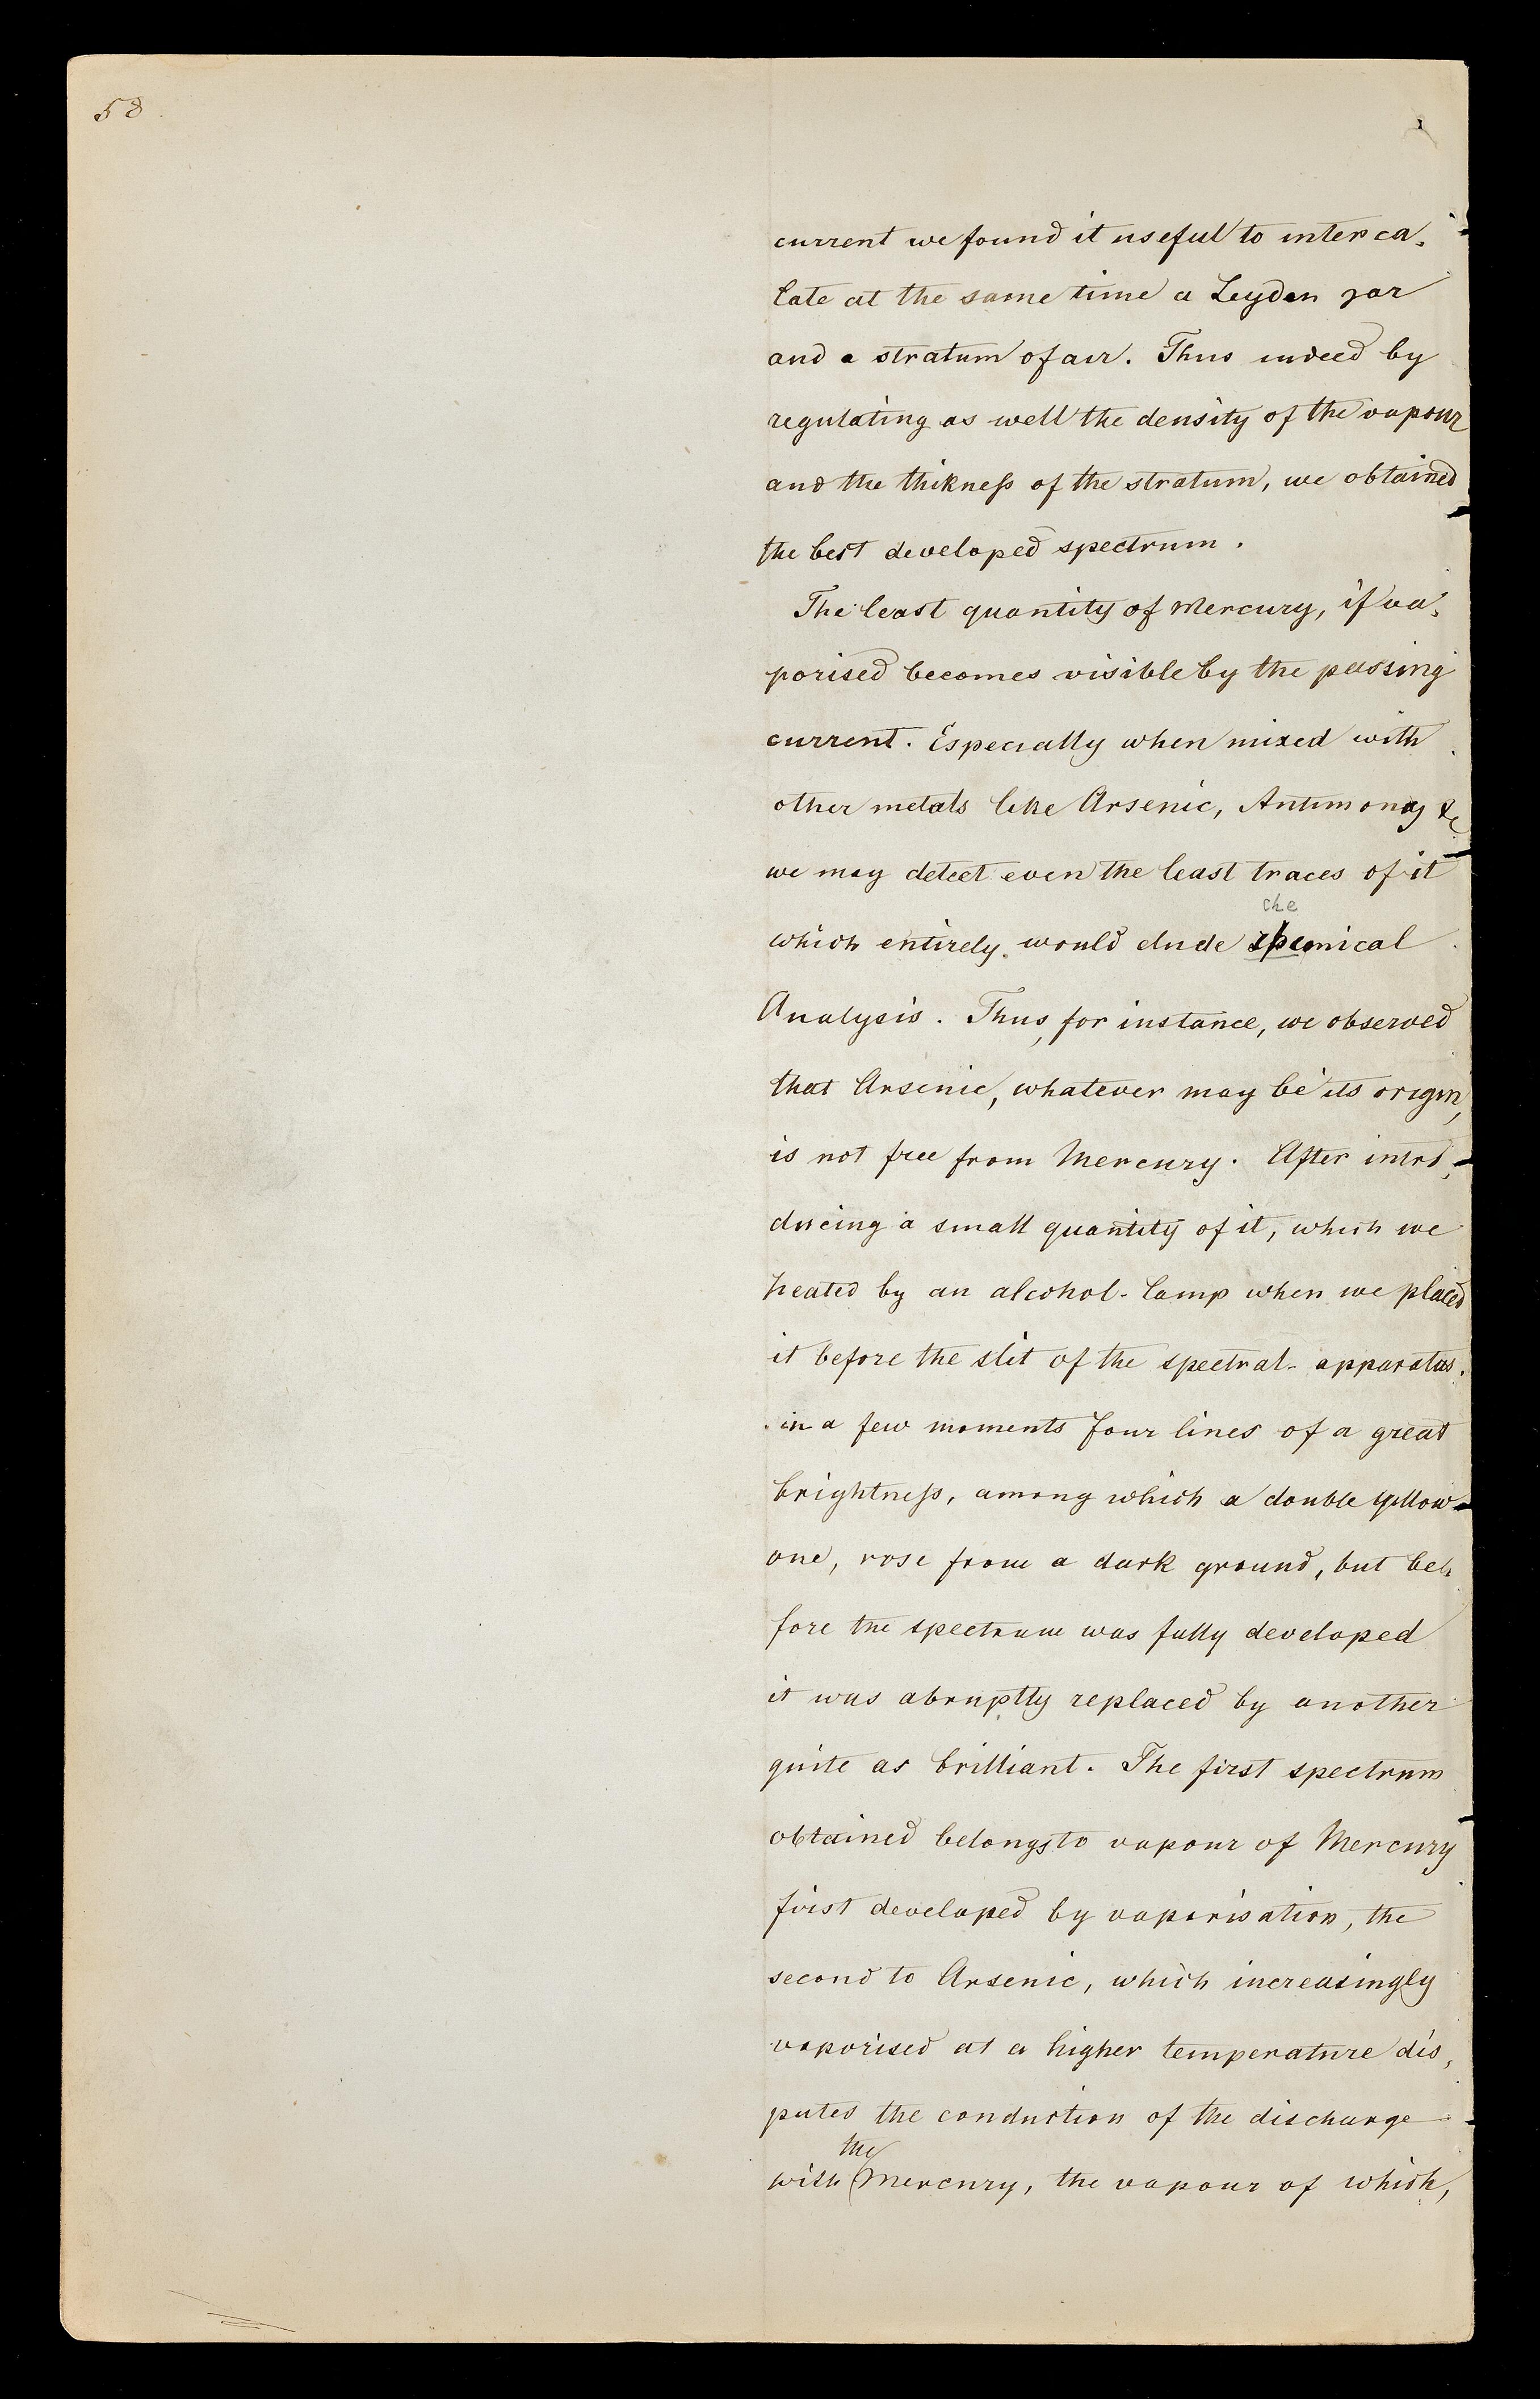 58.
current we found it useful to interca,
late at the same time a Leyden jar
and a stratum of air. Thus indeed by
regulating as well the density of the vapour
and the thikness of the stratum, we obtained
the best developed spectrum.
The least quantity of Mercury, if va,
porised becomes visible by the passing
current. Especially when mixed with
other metals like Arsenic, Antimony &c
we may detect even the least traces of it
che
which entirely would elude chemical
Analysis. Thus, for instance, we observed
that Arsenic, whatever may be its origin,
is not free from Mercury. After intro,
ducing a small quantity of it, which we
heated by an alcohol-lamp when we placed
it before the slit of the spectral-apparatus.
in a few moments four lines of a great
brightness, among which a double yellow
one, rose from a dark ground, but be,
fore the spectrum was fully developed
it was abruptly replaced by another
quite as brilliant. The first spectrum
obtained belongs to vapour of Mercury
first developed by vaporisation, the
second to Arsenic, which increasingly
vaporised at a higher temperature dis,
putes the conduction of the discharge
the
with Mercury, the vapour of which,